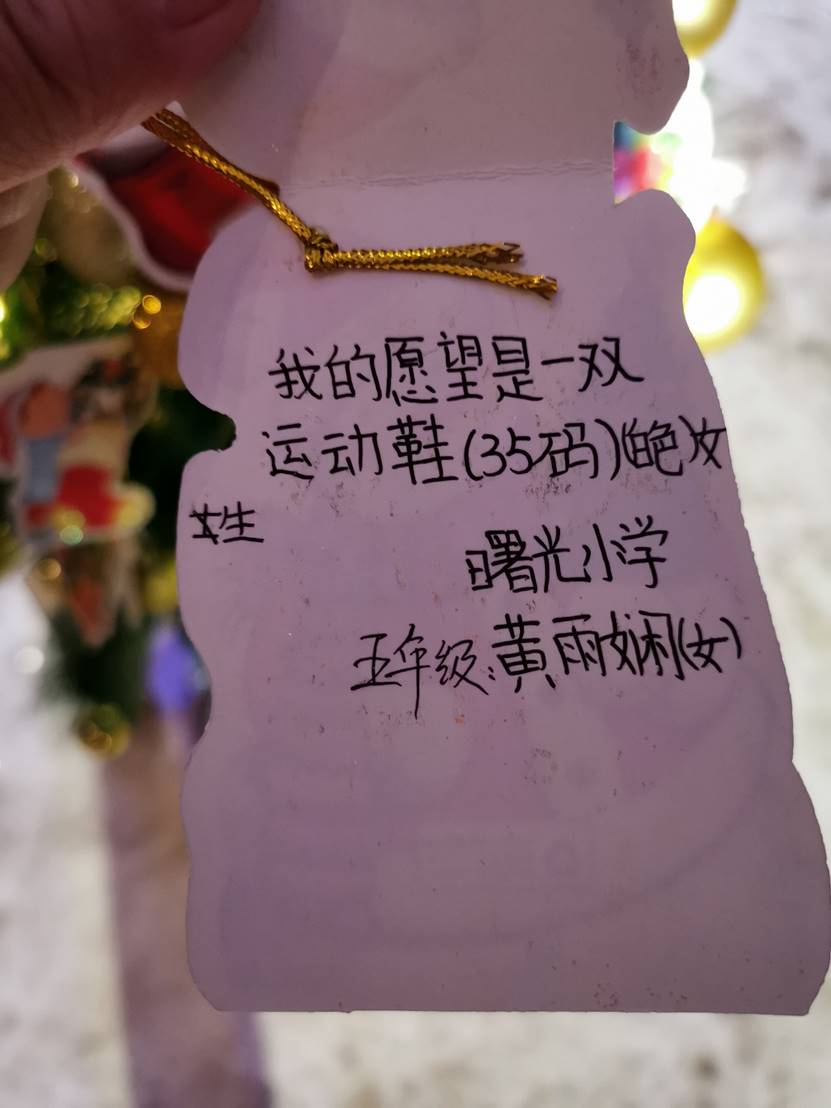 我的愿望是一双
运动鞋(35码)(白色)女
女生
曙光小学
五年级:黄雨娴(女)